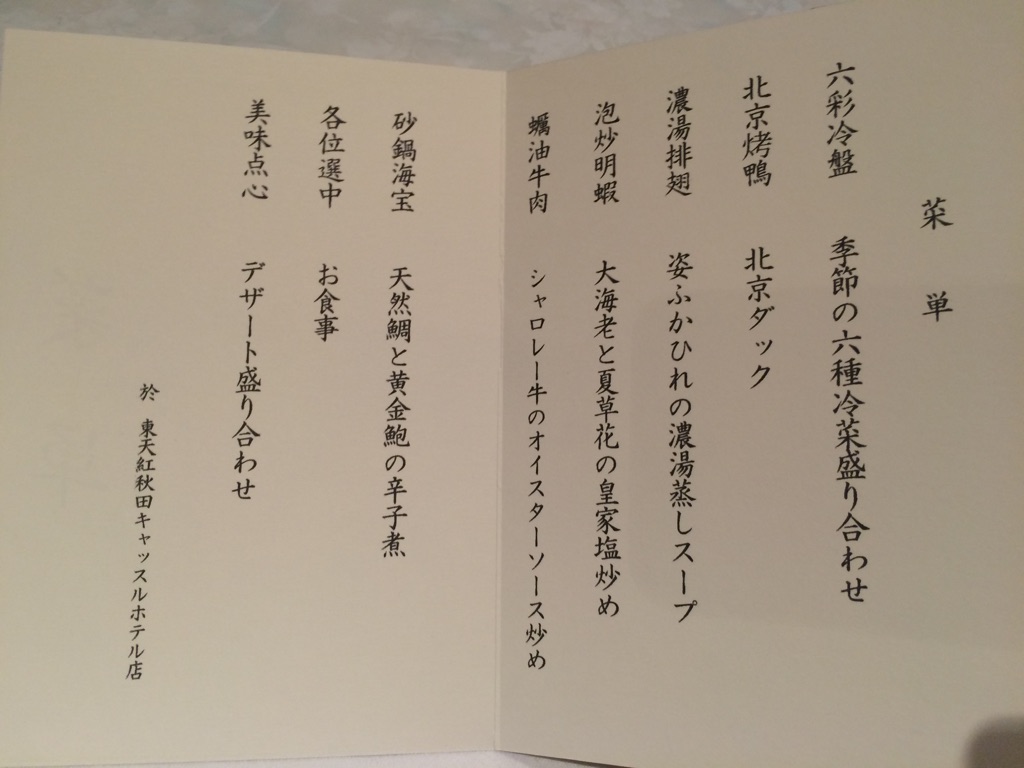 菜単
六彩冷盤 季節の六種冷菜盛り合わせ
北京烤鴨 北京ダック
濃湯排翅 姿ふかひれの濃湯蒸しスープ
泡炒明蝦 大海老と夏草花の皇家塩炒め
蠣油牛肉 シャロレー牛のオイスターソース炒め
砂鍋海宝 天然鯛と黄金鮑の辛子煮
各位選中 お食事
美味点心 デザート盛り合わせ
於 東天紅秋田キャッスルホテル店